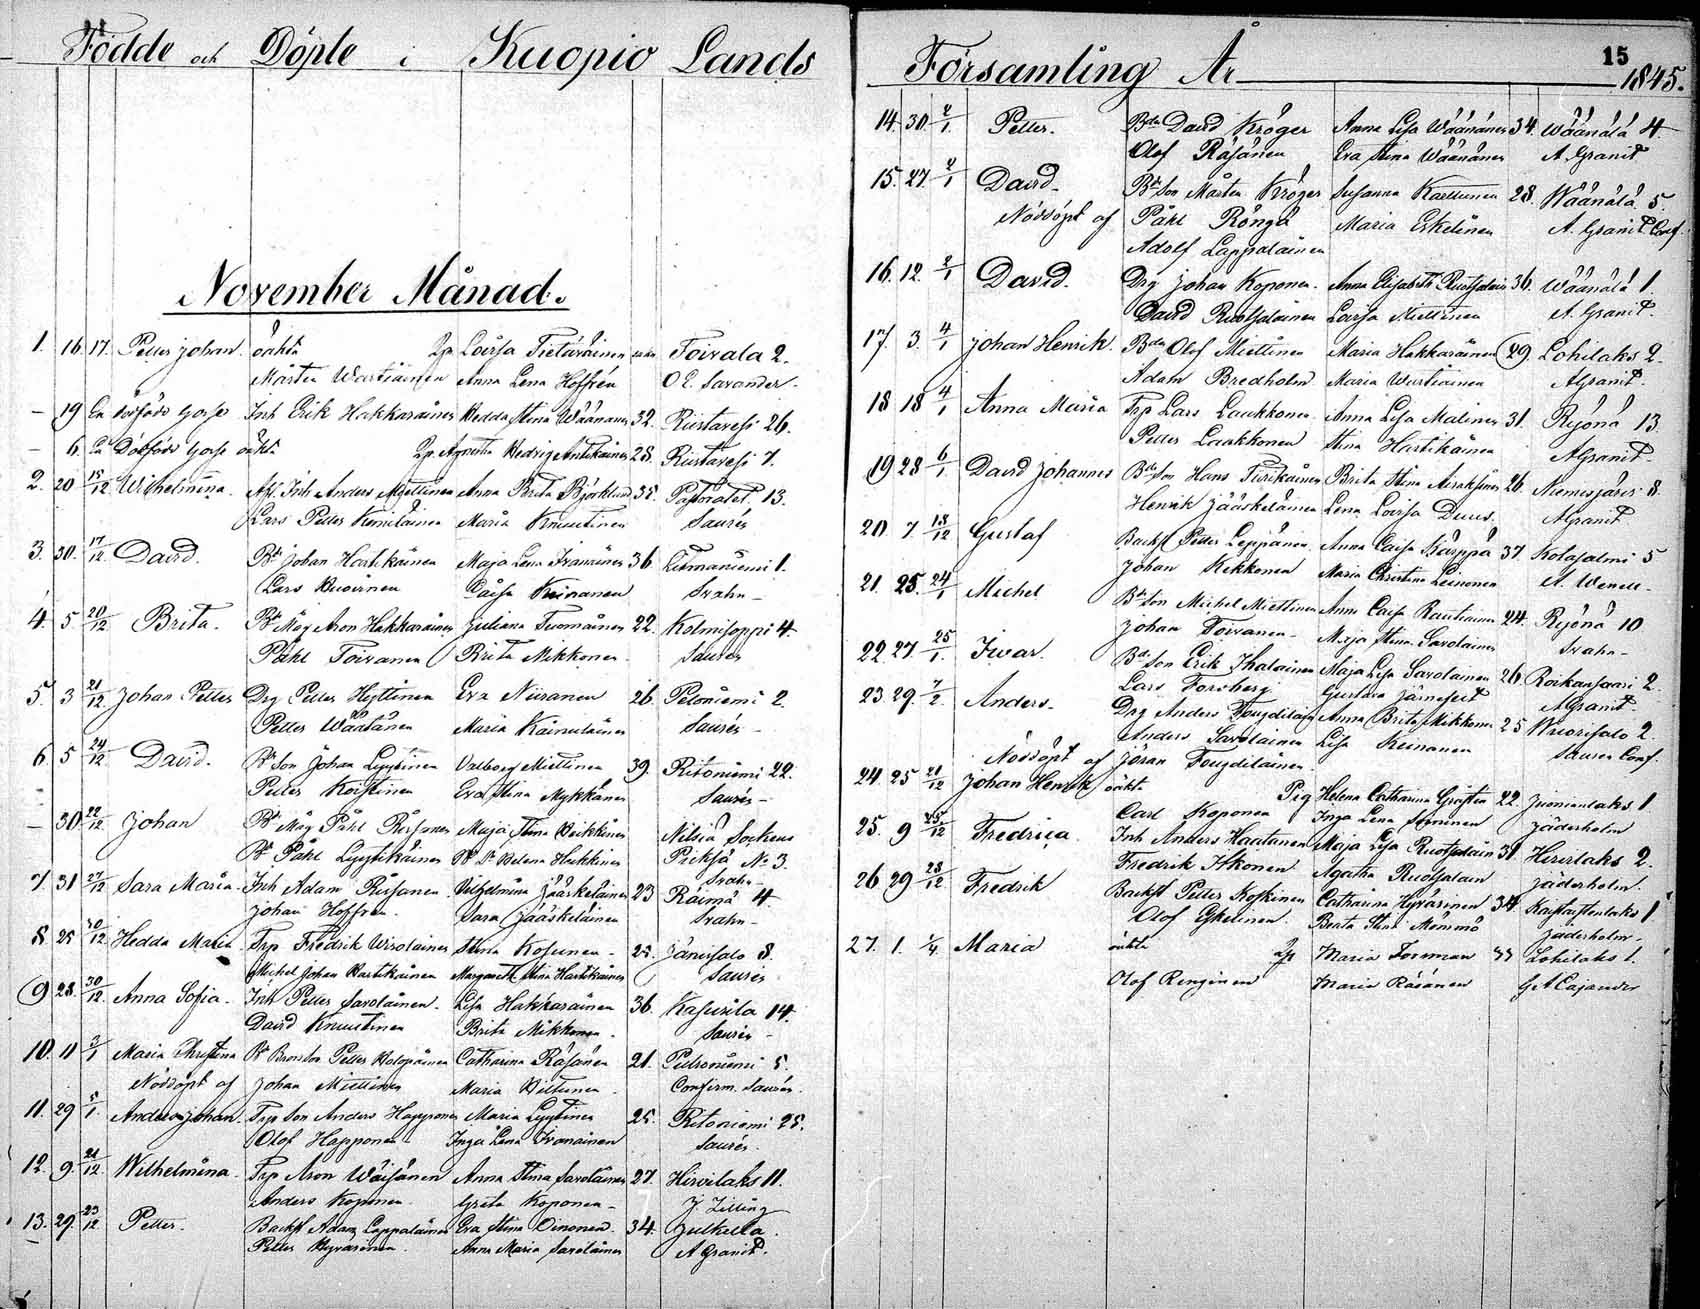 Födde och Döpte i Kuopio Lands
November Månad.
1. 16. 17. Petter Johan. oäkta Pig Lovisa Tietäväinen Toivala 2.
Mårten Wartiainen Anna Lena Hoffrén O E. Savander.
– 19 En dödföde gosse Inh Erik Hakkarainen Hedda Stina Wäänänen 32. Riistavesi 26.
– 6. En Dödföde gosse oäkta Pig Agnetha Hedvig Antikainen 28. Riistavesi 7.
2. 20 15/12 Wilhelmina. Afl. Inh Anders Miettinen Anna Brita Björklund 35. 13.
Lars Petter Maria Knuutinen Saurén
3. 30. 17/12 David. Bd Johan Hartikainen Maja Lena Ivanainen 36 1.
Lars Caisa Keinanen Svahn –
4. 5 20/12 Brita. Bd Måg Aron Hakkarainen Juliana Tuomainen 22. Kolmisoppi 4
Påhl Toivanen Brita Mikkonen Saurén
5. 3 21/12 Johan Petter Drg Petter Heyttinen Eva Niiranen 26. Pelonierni 2.
Petter Wäätänen Maria Kainulainen Saurén –
6. 5 24/12 David. Bd Son Johan Lyytinen Valborg Miettinen 39. Ritoniemi 22.
Petter Koistinen Eva Stina Mykkänen Saurén –
– 30 22/12 Johan Bd Måg Påhl Maja Stina Nilsiä Sockens
Bd Påhl Lyytikäinen Bd D Helena Hukkinen Pieksä No 3.
Svahn –
7. 31 27/12 Sara Maria. Inh Adam Wilhelmina Jääskeläinen 23 Räimä 4.
Johan Hoffren. Sara Jääskeläinen Svahn –
8. 25 30/12 Hedda Maria Trp Fredrik Stina Kosunen – 25. Jänissalo 8.
Michel Johan Hartikainen Margareth Stina Hartikainen Saurén
9 28. 30/12 Anna Sofia. Inh Petter Savolainen. Lisa Hakkarainen 36. Kasurila 14.
David Knuutinen Brita Mikkonen. Saurén –
10. 11 3/1 Maria Christina Bd Petter Holopainen Catharina Räsänen 21. 5.
Nöddöpt af Johan Miettinen Maria Confirm. Saurén.
11. 29 5/1. Anders Johan. Trp Son Anders Happonen Maria Lyytinen 25. Ritoniemi 25.
Olof Happonen – Inga Lena Ivanainen Saurén.
12. 9. 21/12. Wilhelmina. Trp Aron Wäisänen Anna Stina Savolainen 27. Hirvilaks 11.
Anders Koponen. Greta Koponen – J. Zilling
13. 29. 23/12 Petter. Backst Adam Lappalainen Eva Stina Oinonen 34. Julkula.
Petter Hyvärinen. Anna Maria Savolainen A Granit.
15
Församling År 1845.
14. 30. 2/1. Petter. Bde David Kröger Anna Lisa Wäänänen 34. Wäänälä 4
Olof Räsänen Eva Stina Wäänänen A. Granit
15. 27. 2/1 David – Bd Son Mårten Kröger Susanna Karttunen 28. Wäänälä 5.
Nöddöpt af Påhl Röngä Maria Eskelinen A. Granit Conf.
Adolf Lappalainen
16. 12. 2/1 David. Drg Johan Koponen. Anna Elisabeth Ruotsalain 36. Wäänälä 1.
David Ruotsalainen Lovisa Miettinen A. Granit.
17 3. 4/1 Johan Henrik. Bde Olof Miettinen Maria Hakkarainen 29. Lohilaks 2.
Adam Bredholm Maria Wartiainen A Granit.
18 18 4/1 Anna Maria Trp Lars Laukkonen Anna Lisa Malinen 31. Ryönä 13
Petter Laakkonen Stina Hartikainen A Granit.
19 28 6/1 David Johannes Bd Son Hans Brita Stina Airaksinen 26. Niemisjärvi 8.
Henrik Jääskeläinen Lena Lovisa A Granit
20 7 18/12 Gustaf Backst Petter Leppänen Anna Caisa Kärppä 37 Kotasalmi 5
Johan Kekkonen Maria Christina Leinonen A. Wenell –
21. 25. 24/1 Michel Bd Son Michel Miettinen Anna Caisa Rautiainen 24. Ryönä 10
Johan Toivanen – Maja Stina Savolainen Svahn –
22. 27. 25/1. Ivar. Bd Son Erik Ihalainen Maja Lisa Savolainen 26. Roikansaari 2.
Lars Forsberg Gustava Järnefelt A Granit.
23 29. 7/2. Anders – Drg Anders Fougdilain Anna Brita Mikkonen 25 Wuorisalo 2.
Anders Savolainen Lisa Keinanen Saurén Conf.
Nöddöpt af Jöran Fougdilainen
24. 25 21/12 Johan Henrik oäkta Pig Helena Catharina Grästen 22. 1
Carl Koponen Inga Lena Jäderholm
25. 9 25/12 Fredrica Inh Anders Haatanen Maja Lisa Ruotsalain 31 Hirvilaks 2.
Fredrik Ikonen Agatha Ruotsalain Jäderholm.
26 29 28/12 Fredrik Backst Petter Koskinen Catharina Hyvärinen 34 1
Olof Eskelinen. Beata Stina Mömmö Jäderholm –
27. 1. 1/4 Maria oäkta Pig Maria Forsman Lohilaks 1.
Olof Ronginen Maria Räsänen G A Cajander